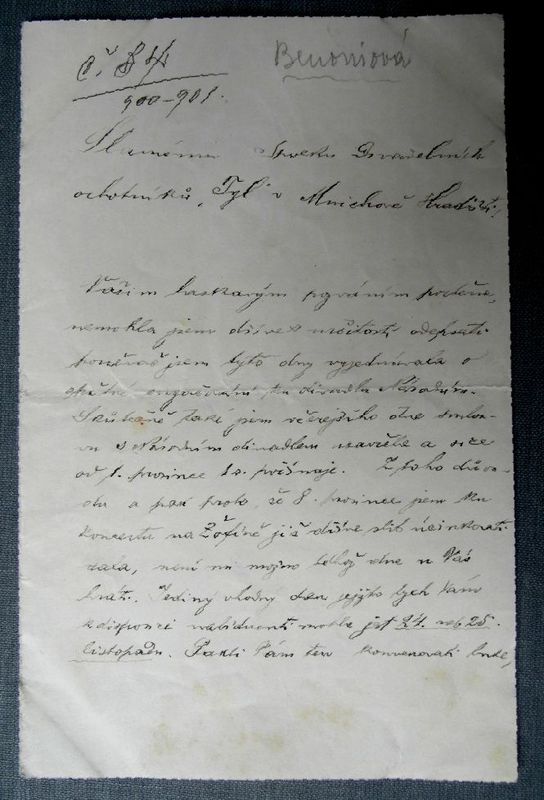 Benoniová
900-901.
Slavnému Divadelních
ochotníků „Tyl“ v Mnichově Hradišti!
Vaším laskavým pozváním poctěna,
nemohla jsem dříve s určitostí odepsati
poněvač jsem tyto dny vyjednávala o
engagování ku divadlu Národním.
Skutečně také jsem včerejšího dne smlou-
vu s Národním divadlem uzavřela a sice
od 1. prosince Z toho důvo-
du a pak proto, že 8. prosince jsem ku
koncertu na Žofíně již dříve slib účinkovati
dala, není mi možno téhož dne u Vás
hráti. Jediný vhodný den jejž bych Vám
k disposici nabídnouti mohla jest 24. neb 25.
listopadu. Pakli Vám ten konvenovati bude,